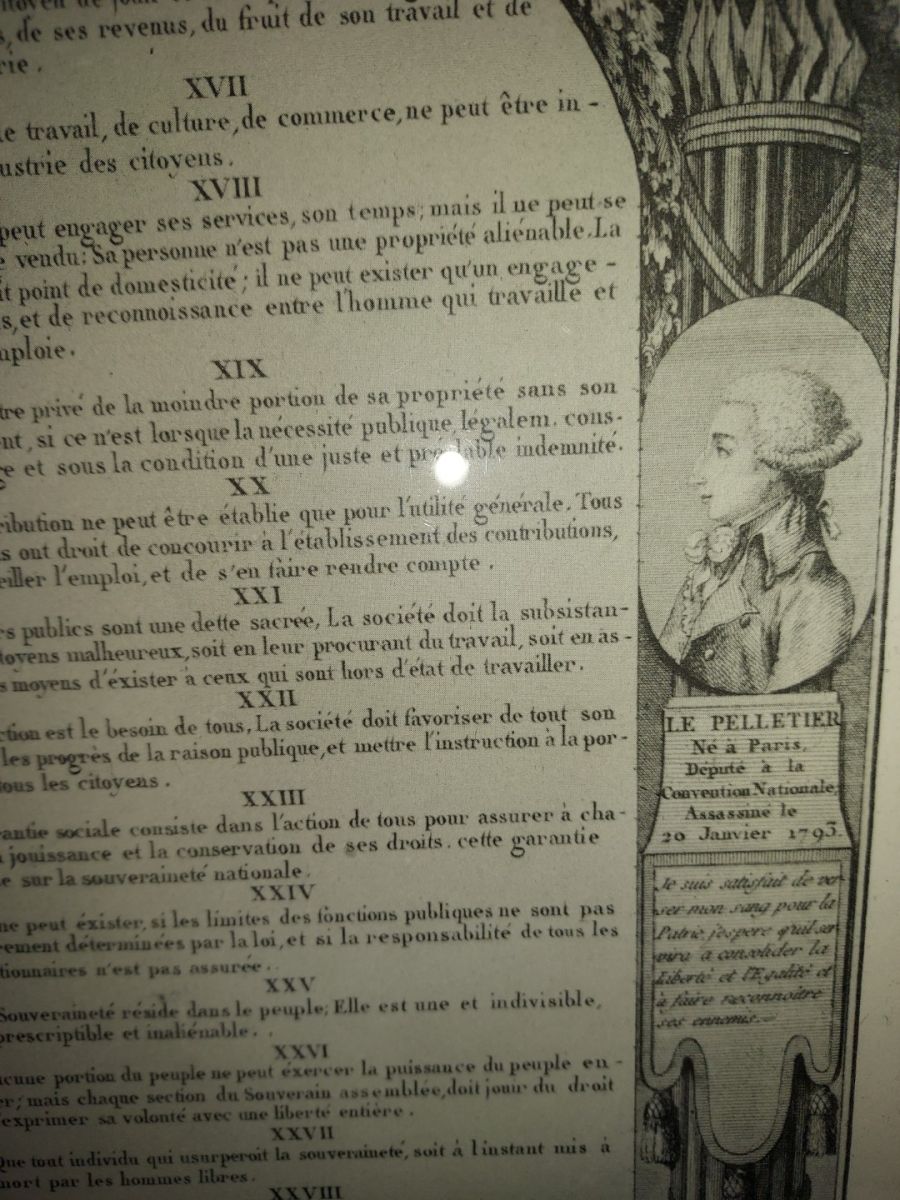 de ses revenus, du fruit de son travail et de
rie.
XVII
de travail, de culture, de commerce, ne peut être in-
ustrie des citoyens.
XVIII
peut engager ses services, son temps; mais il ne peut se
vendu: Sa personne n'est pas une propriété aliénable. La
it point de domesticité; il ne peut exister qu'un engage-
s, et de reconnoissance entre l'homme qui travaille et
mploie.
XIX
tre privé de la moindre portion de sa propriété sans son
nt, si ce n'est lorsque la nécessité publique, légalem. cons-
e et sous la condition d'une juste et préalable indemnité.
XX
ribution ne peut être établie que pour l'utilité générale. Tous
s ont droit de concourir à l'établissement des contributions,
eiller l'emploi, et de s'en faire rendre compte.
XXI
rs publics sont une dette sacrée, La société doit la subsistan-
toyens malheureux, soit en leur procurant du travail, soit en as-
s moyens d'éxister à ceux qui sont hors d'état de travailler.
XXII
ction est le besoin de tous, La société doit favoriser de tout son
les progrès de la raison publique, et mettre l'instruction à la por-
tous les citoyens.
XXIII
rantie sociale consiste dans l'action de tous pour assurer à cha-
jouissance et la conservation de ses droits. cette garantie
e sur la souveraineté nationale.
XXIV
ne peut éxister, si les limites des fonctions publiques ne sont pas
rement déterminées par la loi, et si la responsabilité de tous les
tionnaires n'est pas assurée.
XXV
Souveraineté réside dans le peuple; Elle est une et indivisible,
prescriptible et inaliénable.
XXVI
ucune portion du peuple ne peut éxercer la puissance du peuple en-
er; mais chaque section du Souverain assemblée, doit jouir du droit
'exprimer sa volonté avec une liberté entière.
XXVII
Que tout individu qui usurperoit la souveraineté, soit à l'instant mis à
mort par les hommes libres.
XXVIII
LE PELLETIER
Né à Paris,
Député à la
Convention Nationale,
Assassiné le
20 Janvier 1793.
Je suis satisfait de ver-
ser mon sang pour la
Patrie j'espere qu'il ser-
vira à consolider la
liberté et l'Egalité et
à faire reconnoitre
ses ennemis.